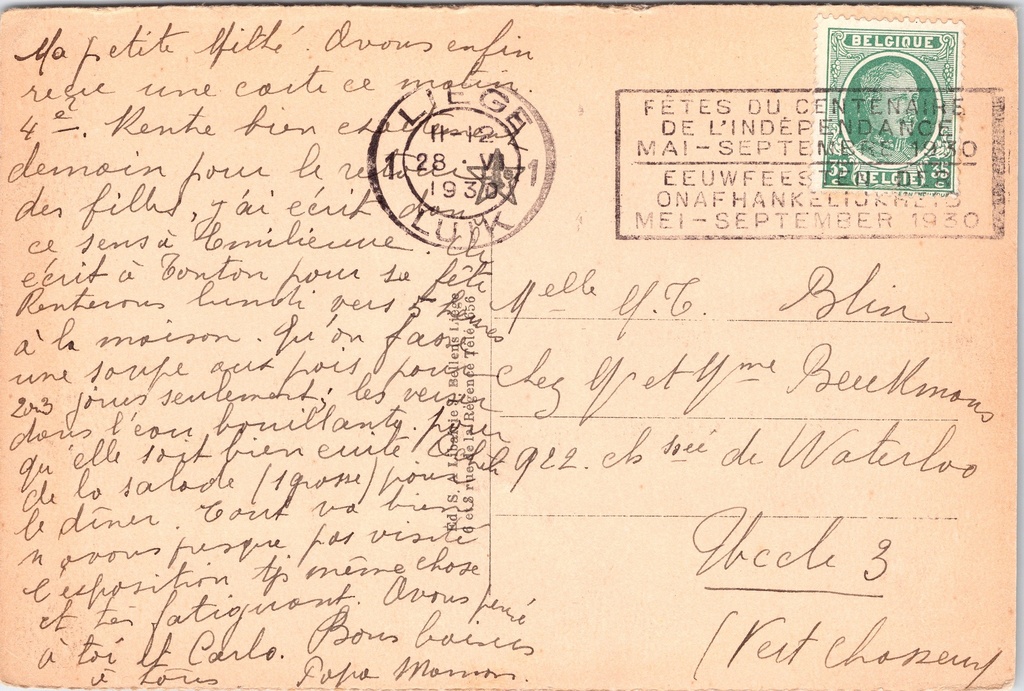 Ma petite Milhé. Avons enfin
reçu une carte ce matin.
4e. Rentre bien
demain pour le
des filles, j'ai écrit dans
ce sens à Emilienne. Ai
écrit à Tonton pour sa fête
Rentrerons lundi vers 5 heures
à la maison. Qu'on fasse
une soupe aux pois pour
2 ou 3 jours seulement; les verser
dans l'eau bouillante pour
qu'elle soit bien cuite
de la salade (1 grosse) pour
le dîner. Tout va bien
n'avons presque pas visité
l'exposition tjs même chose
et très fatiguant. Avons pensé
à toi et Carlo. Bons baisers
à tous Papa Maman.
LIEGE 1
11-12
28 · VI
1930
1 1
LUIK
FÊTES DU CENTENAIRE
DE L'INDÉPENDANCE
MAI-SEPTEMBRE 1930
EEUWFEESTEN DER
ONAFHANKELIJKHEID
MEI-SEPTEMBER 1930
BELGIQUE
35 (BELGIË) 35
Ed. S. A. Librairie J. Bellens Liége
6 et 8 rue de la Régence Télé. 656
Melle M.T. Blin
chez Mr et Mme Beeckmans
922. chssée de Waterloo
Uccle 3
(Vert Chasseur)